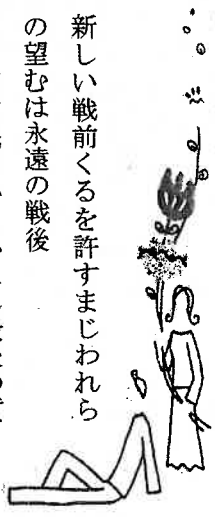 新しい戦前くるを許すまじわれら
の望むは永遠の戦後